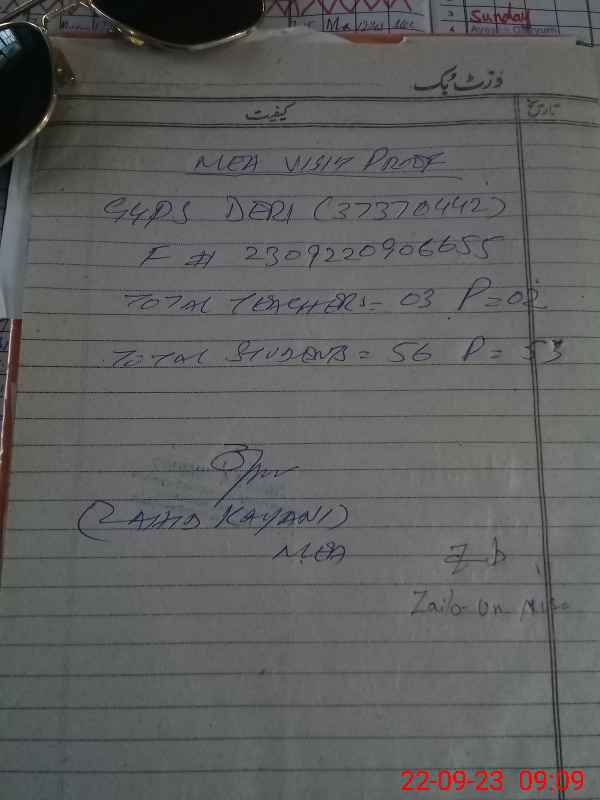 Sunday
وزٹ بک
کیفیت
تاریخ
MEA VISIT PROOF
GGPS DERI (37370442)
F # 2309220906655
TOTAL TEACHERS = 03 P = 02
TOTAL STUDENTS = 56 P = 53
(ZAHID KAYANI)
MEA
22-09-23 09:09